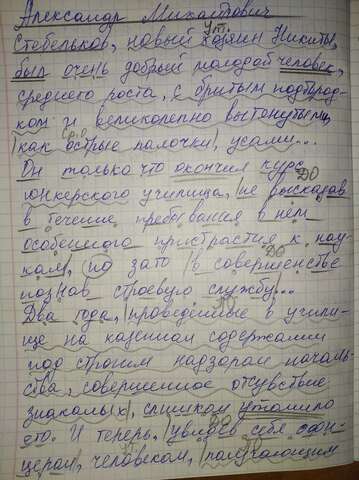 Александр Михайлович
ут.
Стебельков, новый хозяин Никиты,
был очень добрый молодой человек,
среднего роста, с бритым подбород-
ком и великолепно вытянутыми,
ср.о
как острые палочки, усами...
Он только что окончил курс
ДО
юнкерского училища, не выказав
в течение пребывания в нём
особенного пристрастия к нау-
ДО
кам, но зато в совершенстве
познав строевую службу...
ПО
Два года, проведенные в учили-
ще на казенном содержании
под строгим надзором началь-
ства, совершенное отсувствие
знакомых, слишком утомило
ДО
его. И теперь, увидев себя офи-
церам, человеком, получающим